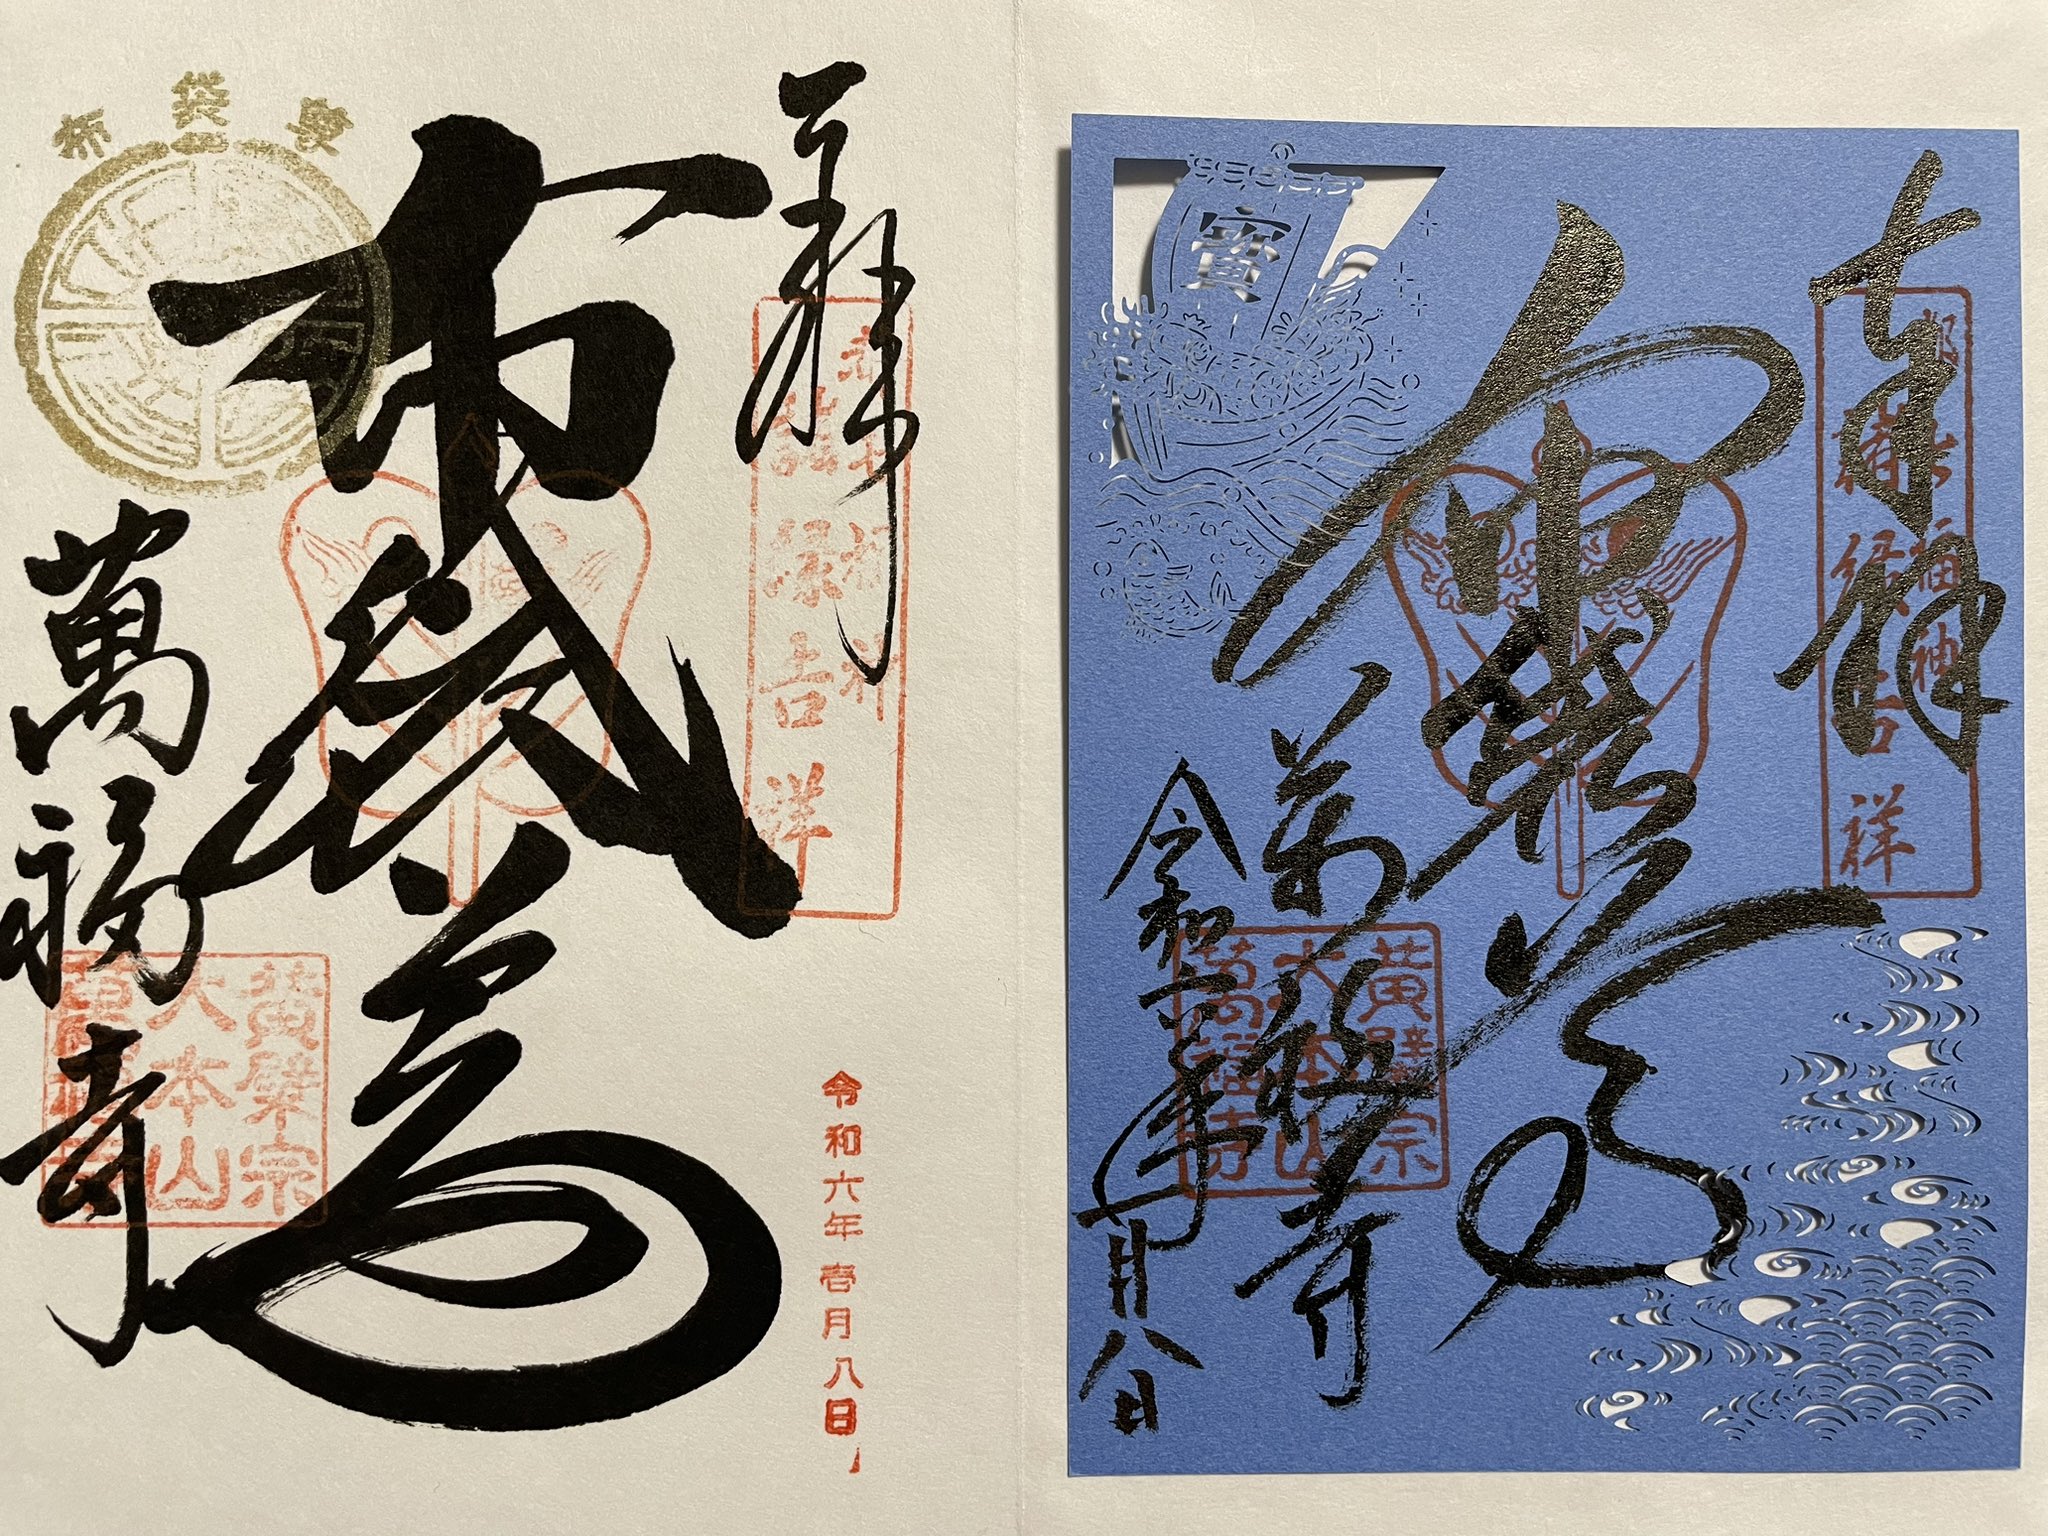 奉拝
都七福神
諸縁吉祥
布袋尊
布袋尊
萬福寺
黄檗宗
大本山
萬福寺
令和六年壱月八日
奉拝
都七福神
諸縁吉祥
寶
布袋尊
萬福寺
黄檗宗
大本山
萬福寺
令和六年一月八日